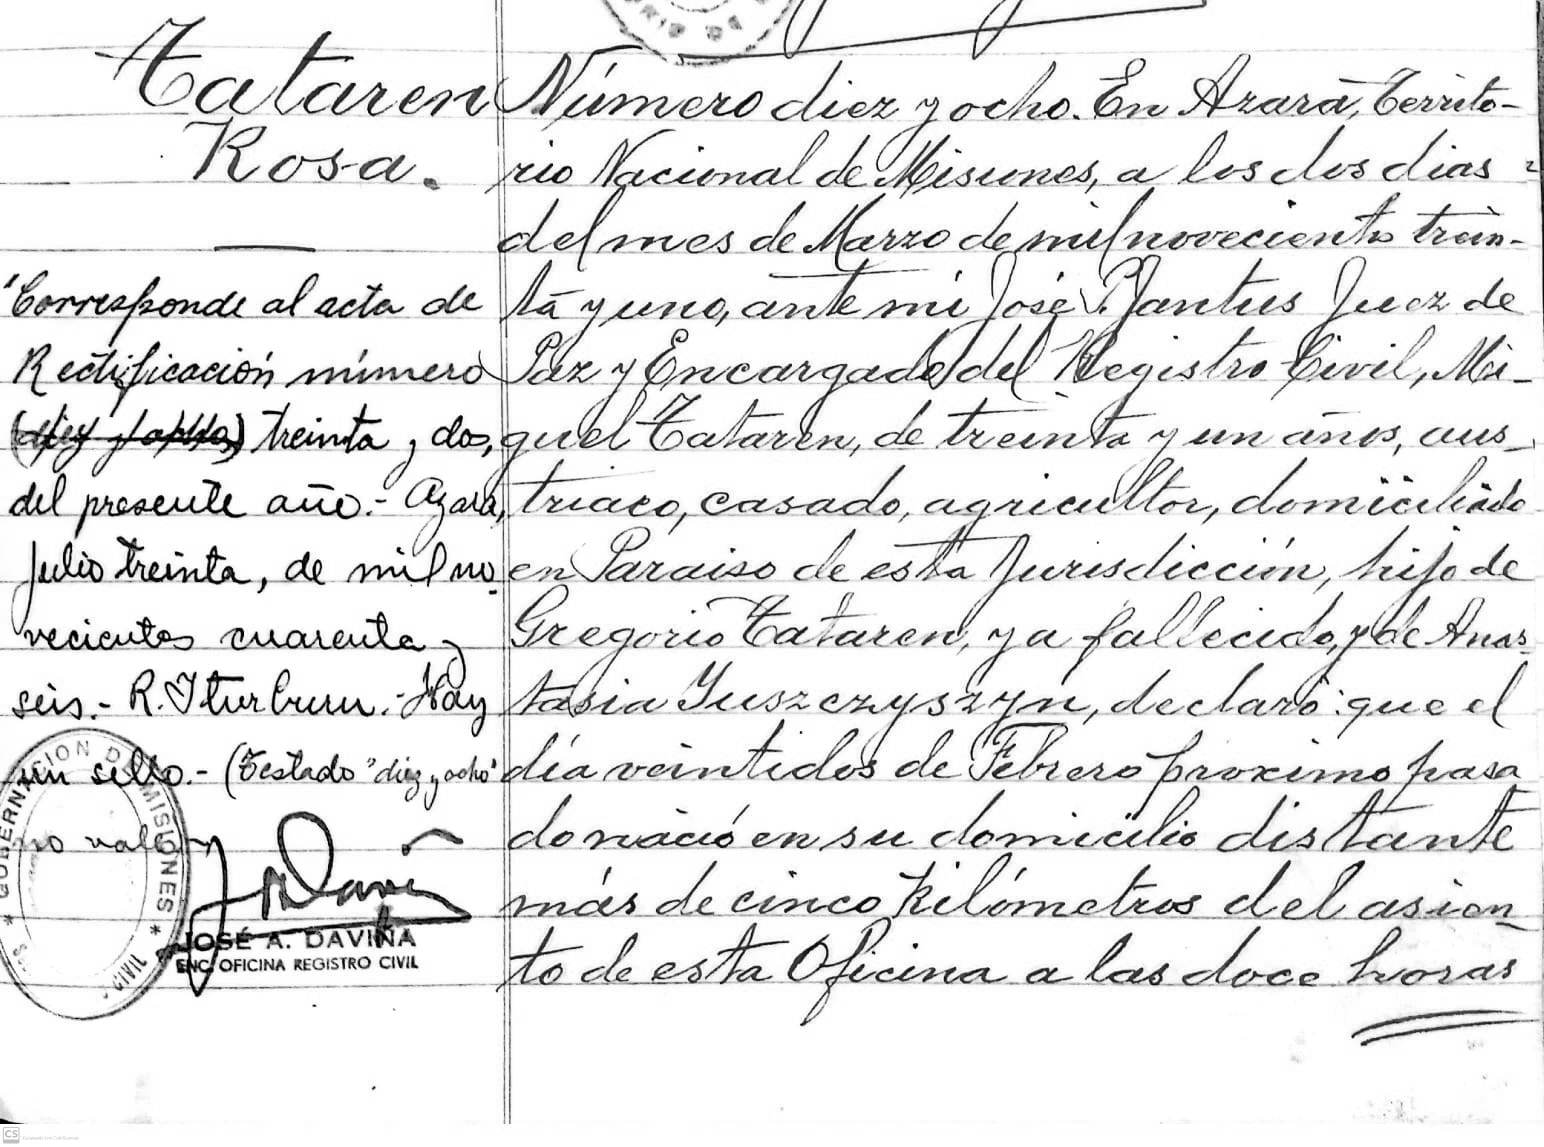 Tataren
Rosa.
"Corresponde al acta de
Rectificación número
(diez y ocho) treinta y dos,
del presente año.- Azara,
Julio treinta, de mil no-
vecientos cuarenta y
seis.- R. Iturburu.- Hay
un sello.- (Testado "diez y ocho"
no vale)
JOSÉ A. DAVIÑA
ENC. OFICINA REGISTRO CIVIL
GOBERNACION DE MISIONES
CIVIL
Número diez y ocho. En Azara, Territo-
rio Nacional de Misiones, a los dos dias
del mes de Marzo de mil novecientos trein-
ta y uno, ante mi José P. Jantus Juez de
Paz y Encargado del Registro Civil, Mi-
guel Tataren, de treinta y un años, aus-
triaco, casado, agricultor, domiciliado
en Paraiso de esta Jurisdicción, hijo de
Gregorio Tataren, ya fallecido, y de Anas-
tasia Juszczyszyn, declaró: que el
día veintidos de Febrero proximo pasa
do nació en su domicilio distante
más de cinco kilómetros del asien-
to de esta Oficina a las doce horas
CS